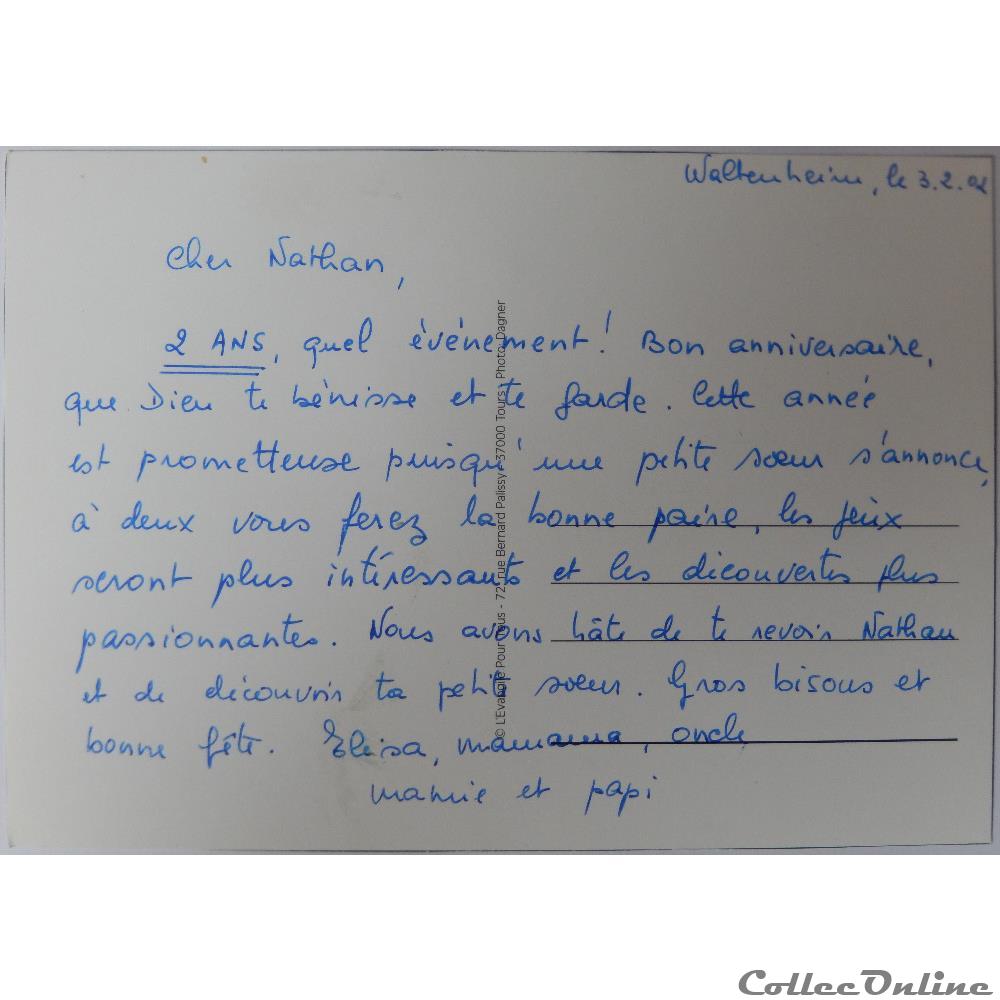 Waltenheim, le 3.2.02
Cher Nathan,
2 ANS, quel événement! Bon anniversaire,
que Dieu te bénisse et te garde. Cette année
est prometteuse puisqu'une petite soeur s'annonce,
à deux vous ferez la bonne paire, les jeux
seront plus intéressants et les découvertes plus
passionnantes. Nous avons hâte de te revoir Nathan
et de découvrir ta petite soeur. Gros bisous et
bonne fête. Elisa, mamama, oncle,
mamie et papi
© L'Evangile Pour Tous - 72, rue Bernard Palissy - 37000 Tours - Photo: Dagner
CollecOnline